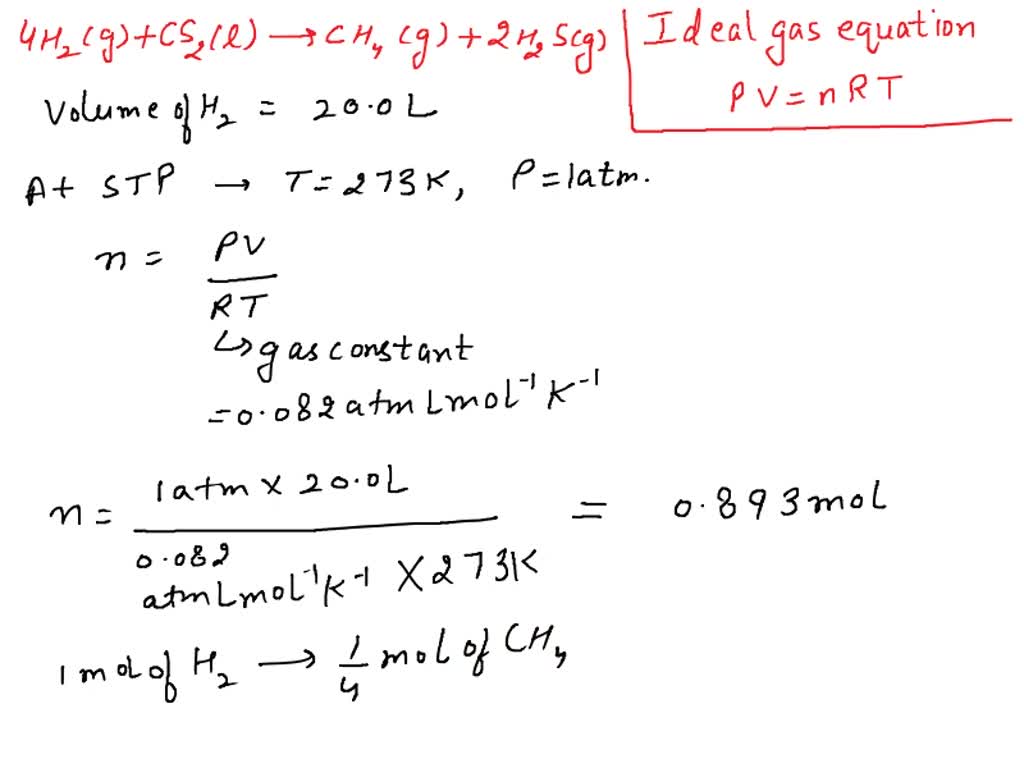 4H₂(g)+CS₂(l) → CH₄(g)+2H₂S(g)
Ideal gas equation
PV=nRT
Volume of H₂ = 20.0L
At STP → T=273K, P=1atm.
n = PV
RT
↳ gas constant
=0.082 atm L mol⁻¹ K⁻¹
n = 1atm × 20.0L = 0.893mol
0.082
atm L mol⁻¹ K⁻¹ × 273K
1 mol of H₂ → 1/4 mol of CH₄